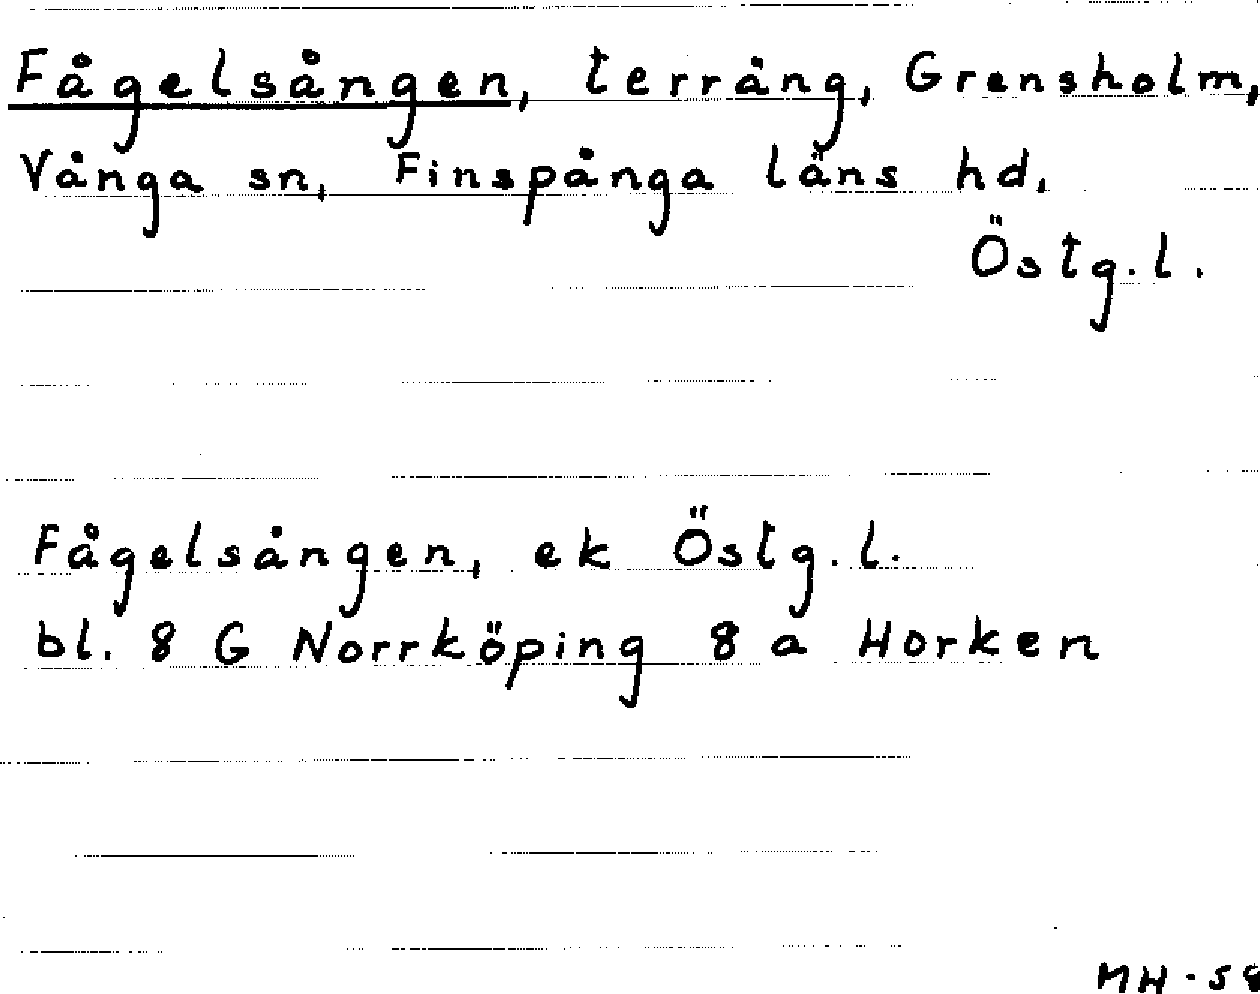 Fågelsången, terräng, Grensholm,
Vånga sn, Finspånga läns hd,
Östg.l.
Fågelsången, ek Östg.l.
bl. 8 G Norrköping 8 a Horken
MH-58